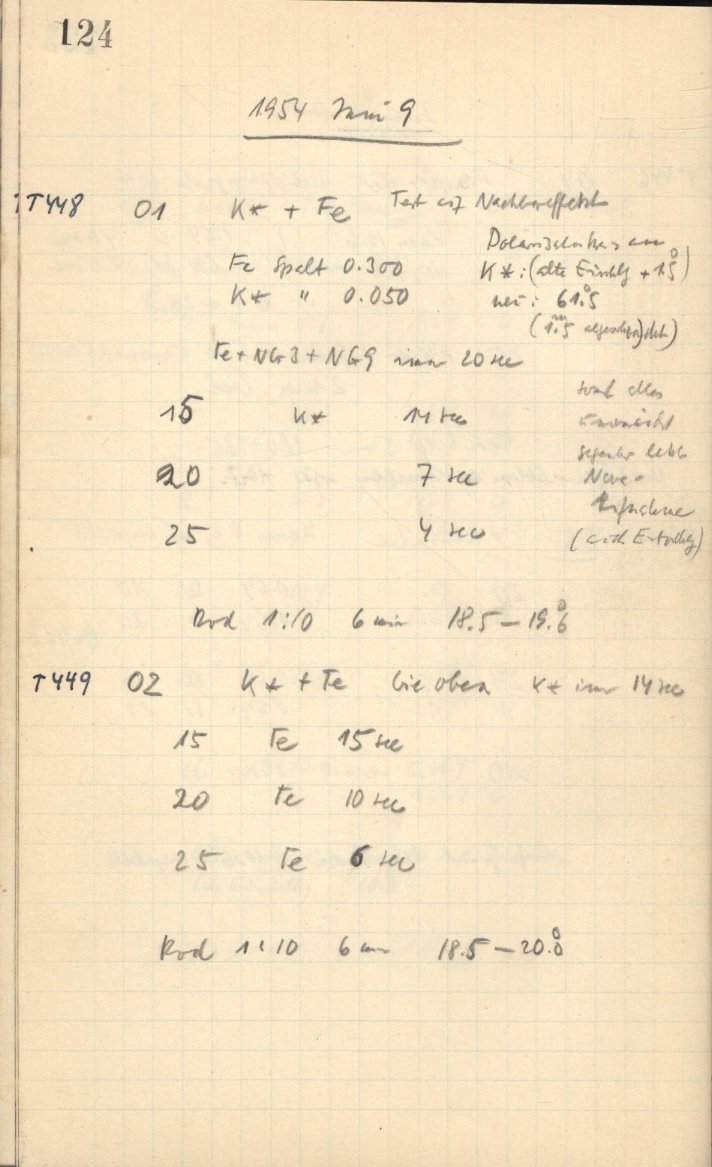 124
1954 Juni 9
T448 01 K* + Fe Test auf Nachbareffekte
Fe Spalt 0.300
K* " 0.050
K*: (alte Einstlg + 1.5°)
neu: 61.5°
(1.5m abgeschwächt)
Fe + NG3 + NG9 immer 20 sec
15 K* 14 sec
20 7 sec
25 4 sec
sonst alles
unverändert
gegenüber letzte
Nova-
Aufnahme
(auch Entwcklg)
Rod 1:10 6 min 18.5 – 19.6°
T449 02 K* + Fe wie oben K* immer 14 sec
15 Fe 15 sec
20 Fe 10 sec
25 Fe 6 sec
Rod 1:10 6 min 18.5 – 20.0°